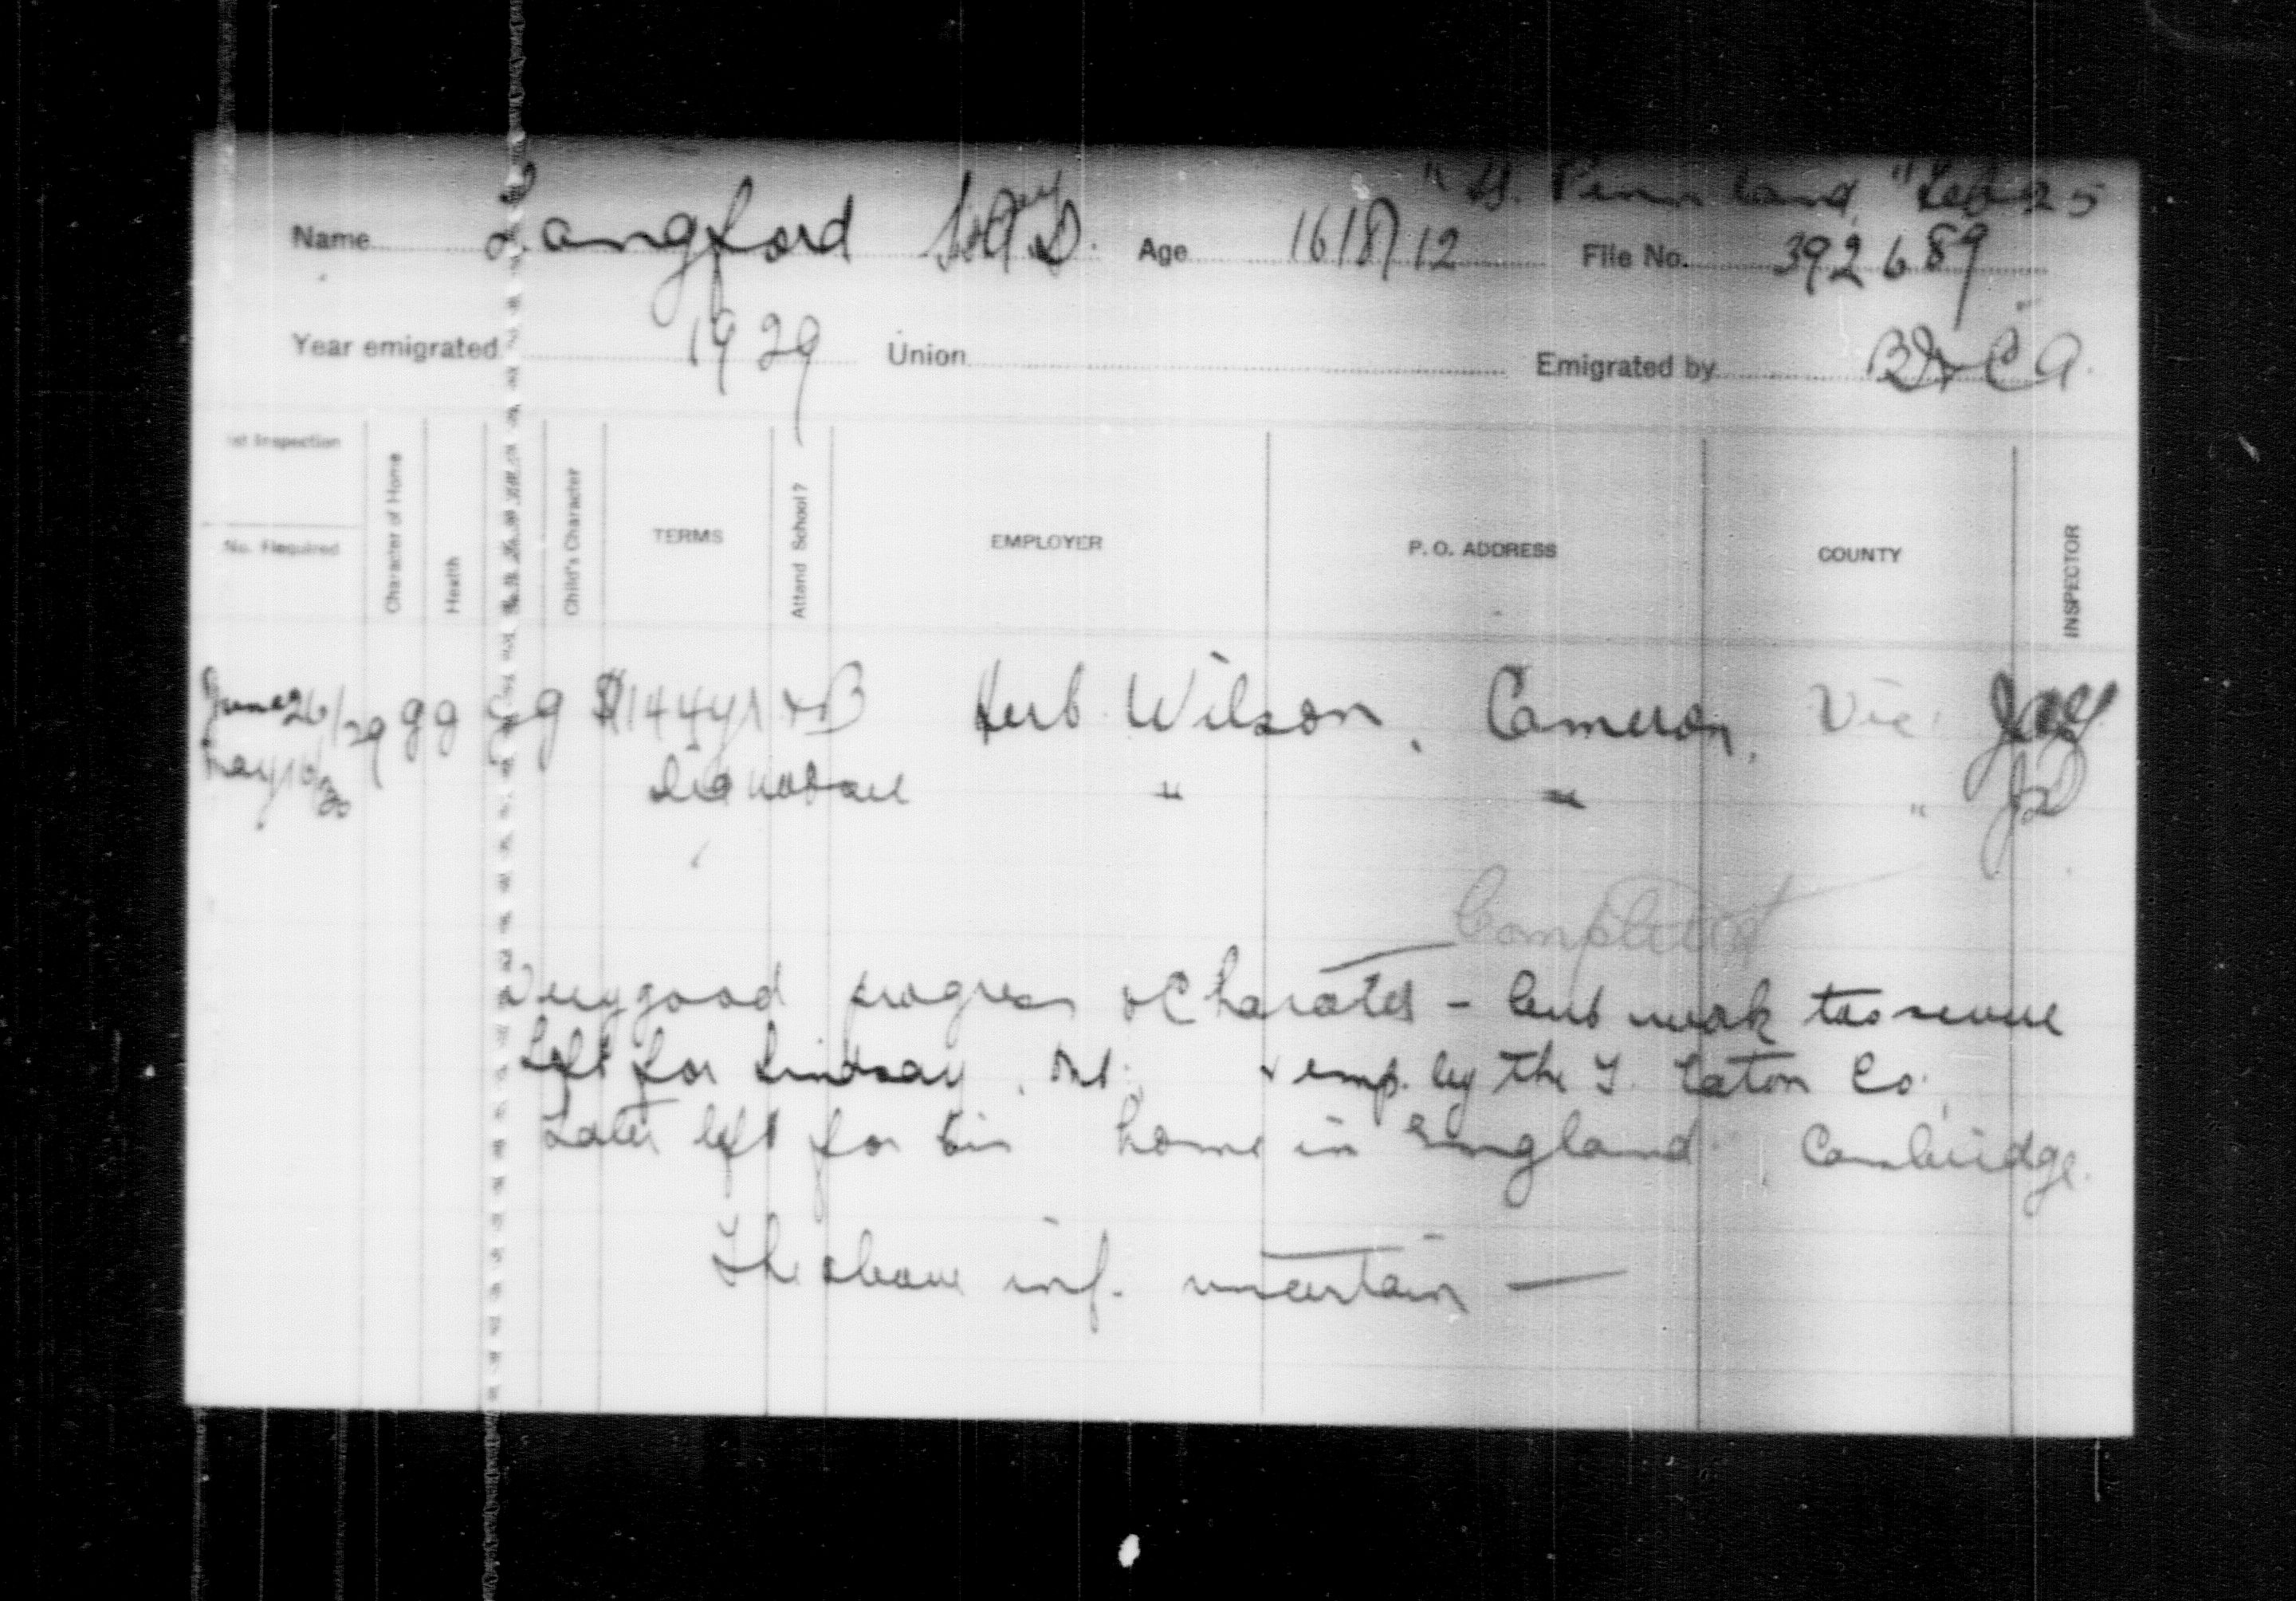 " Pennland " Feb 25
Name Langford D. Age 16/8/12 File No. 392689
Year emigrated 1929 Union Emigrated by
1st Inspection
No. Required
Character of Home
Health
Child's Character
TERMS
Attend School?
EMPLOYER
P. O. ADDRESS
COUNTY
INSPECTOR
June 26/29 g g g $144 yr + B Herb Wilson, Cameron, Vic.
May 10/30 " " "
Completed
Very good progress & - but work too severe
Left for Lindsay, Ont. & emp. by the T. Eaton Co.
Later left for his home in England, Cambridge.
The above inf. uncertain —